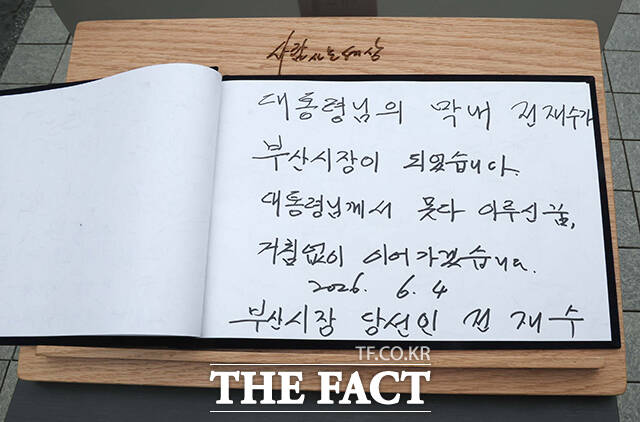 사람사는세상
대통령님의 막내 전재수가
부산시장이 되었습니다.
대통령님께서 못다 이루신 꿈,
거침없이 이어가겠습니다.
2026. 6. 4
부산시장 당선인 전재수
TF.CO.KR
THE FACT